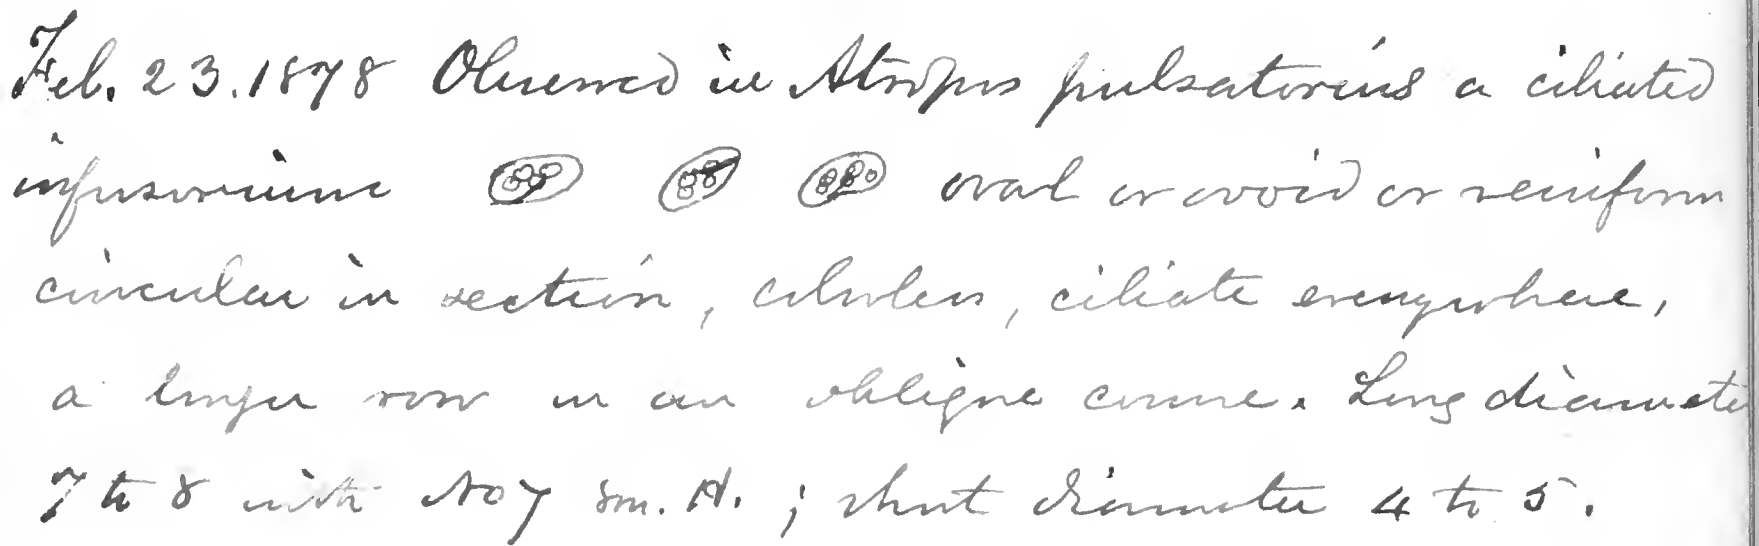 Feb. 23. 1878 Observed in Atropos pulsatorius a ciliated
infusorium oval or ovoid or reniform
circular in section, colorless, ciliate everywhere,
a longer row in an oblique curve. Long diameter
7 to 8 with No 7 sm. H. ; short diameter 4 to 5.